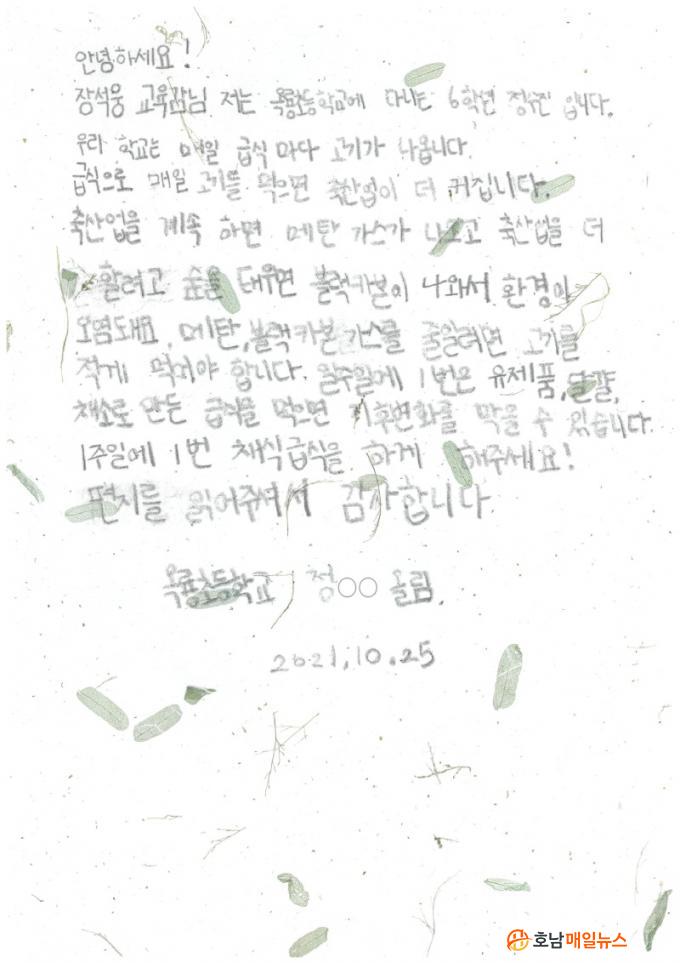 안녕하세요!
장석웅 교육감님 저는 옥룡초등학교에 다니는 6학년 정수진 입니다.
우리 학교는 매일 급식 마다 고기가 나옵니다.
급식으로 매일 고기를 먹으면 축산업이 더 커집니다.
축산업을 계속 하면 메탄 가스가 나오고 축산업을 더
할려고 숲을 태우면 블랙카본이 나와서 환경이
오염돼요. 메탄,블랙카본가스를 줄일려면 고기를
적게 먹어야 합니다. 일주일에 1번은 유제품,달걀,
채소로 만든 급식을 먹으면 기후변화를 막을 수 있습니다.
1주일에 1번 채식급식을 하게 해주세요!
편지를 읽어주셔서 감사합니다
옥룡초등학교 정○○ 올림.
2021.10.25
호남매일뉴스